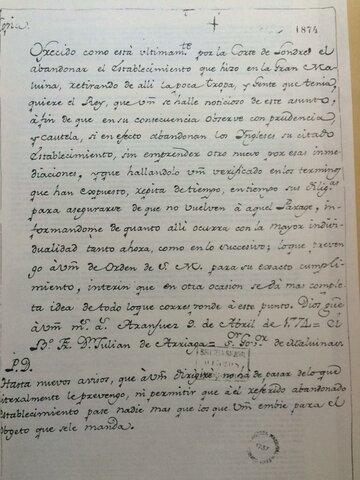 Copia
1874
Ofrecido como está ultimamte. por la Corte de Londres el
abandonar el Establecimiento que hizo en la Gran Ma-
luina, retirando de alli la poca tropa, y gente que tenia,
quiere el Rey, que Vm se halle noticioso de este asunto,
á fin de que en su consecuencia observe con prudencia,
y cautela, si en efecto abandonan los Ingleses su citado
Establecimiento, sin emprender otro nuevo por esas inme-
diaciones, y que hallandolo Vm verificado en los terminos
que hán expuesto, repita de tiempo, en tiempo sus diligas.
para asegurarse de que no vuelven á aquel Parage, in-
formandome de quanto alli ocurra con la mayor indivi-
dualidad tanto ahora, como en lo succesivo; lo que preven-
go á Vm de Orden de S. M. para su exacto cumpli-
miento, interin que en otra ocasion se dá mas comple-
ta idea de todo loque corresponde á este punto. Dios gũe
á Vm ms. as. Aranjuez 9. de Abril de 1774 = El
Bo. Fr. Dn. Julian de Arriaga = Sor. Gor. de Maluinas.
P.D.
Hasta nuevos avisos, que á Vm dirigire no ha de pasar de lo que
literalmente le prevengo, ni permitir que á el referido abandonado
Establecimiento pase nadie mas que los que Vm embie para el
objeto que sele manda.